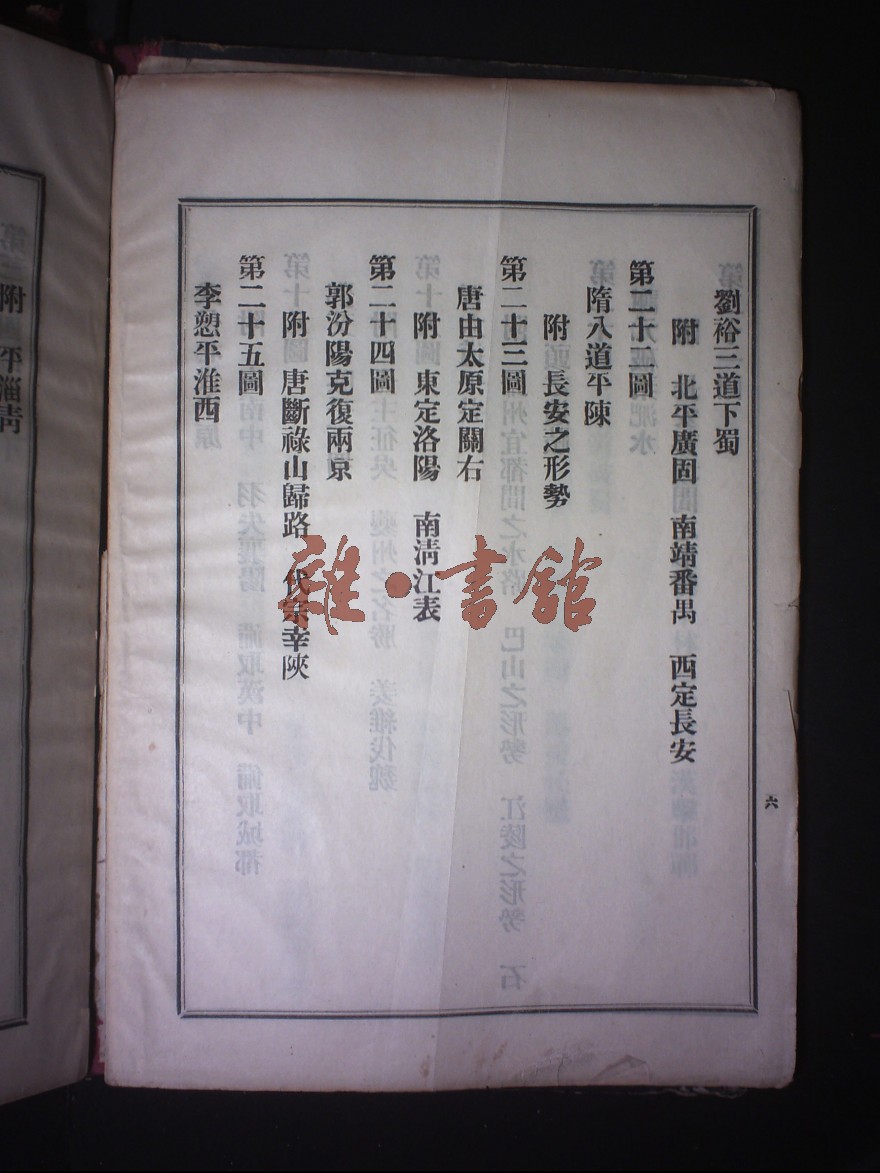 劉裕三道下蜀
附　北平廣固　南靖番禺　西定長安
第二十二圖
隋八道平陳
附　長安之形勢
第二十三圖
唐由太原定關右
附　東定洛陽　南淸江表
第二十四圖
郭汾陽克復兩京
附　唐斷祿山歸路　代宗幸陝
第二十五圖
李愬平淮西
六
附　平淄青
雜·書館